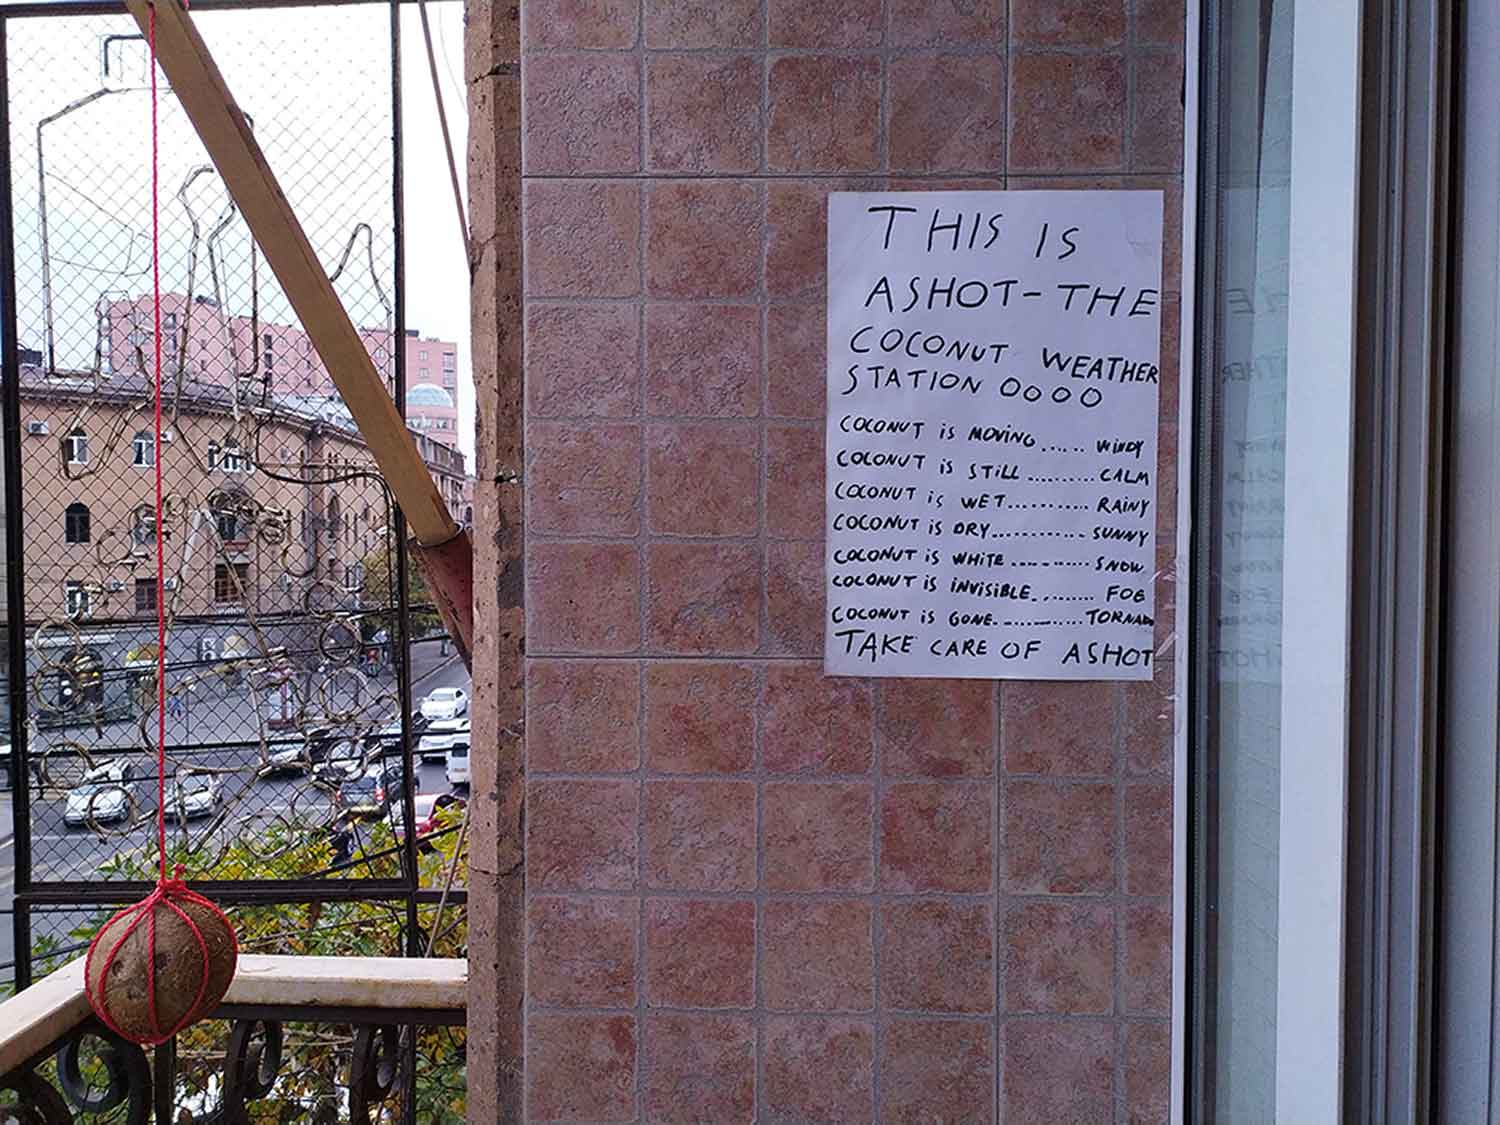 THIS IS
ASHOT-THE
COCONUT WEATHER
STATION OOOO
COCONUT is MOViNG...... WiNDY
COCONUT is STiLL.......... CALM
COCONUT is WET........... RAiNY
COCONUT iS DRY............. SUNNY
COCONUT iS WHiTE........... SNOW
COCONUT iS iNViSiBLE......... FOG
COCONUT iS GONE............ TORNADO
TAKE CARE OF ASHOT